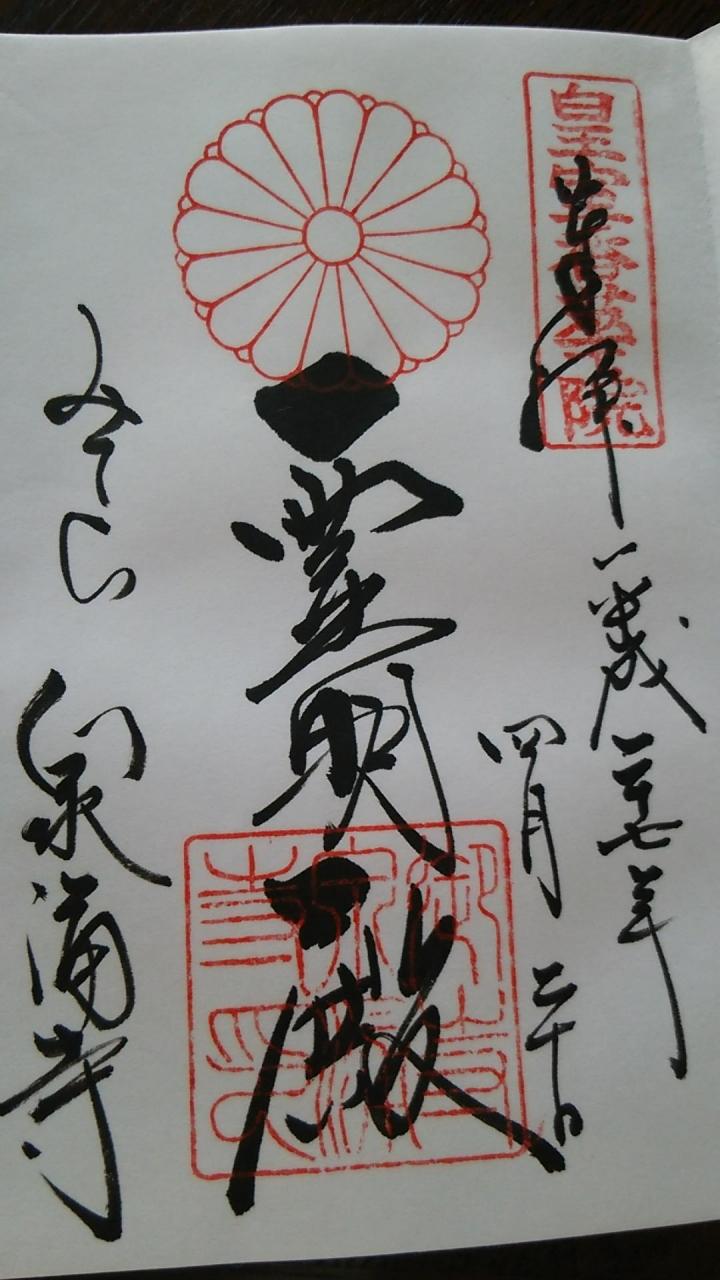 皇室香華院
奉拝
平成二十七年
四月二十日
霊明殿
みてら
泉涌寺